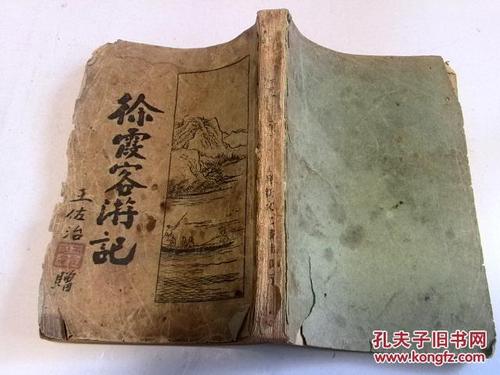 徐霞客游記
王佐治
贈
孔夫子旧书网
www.kongfz.com